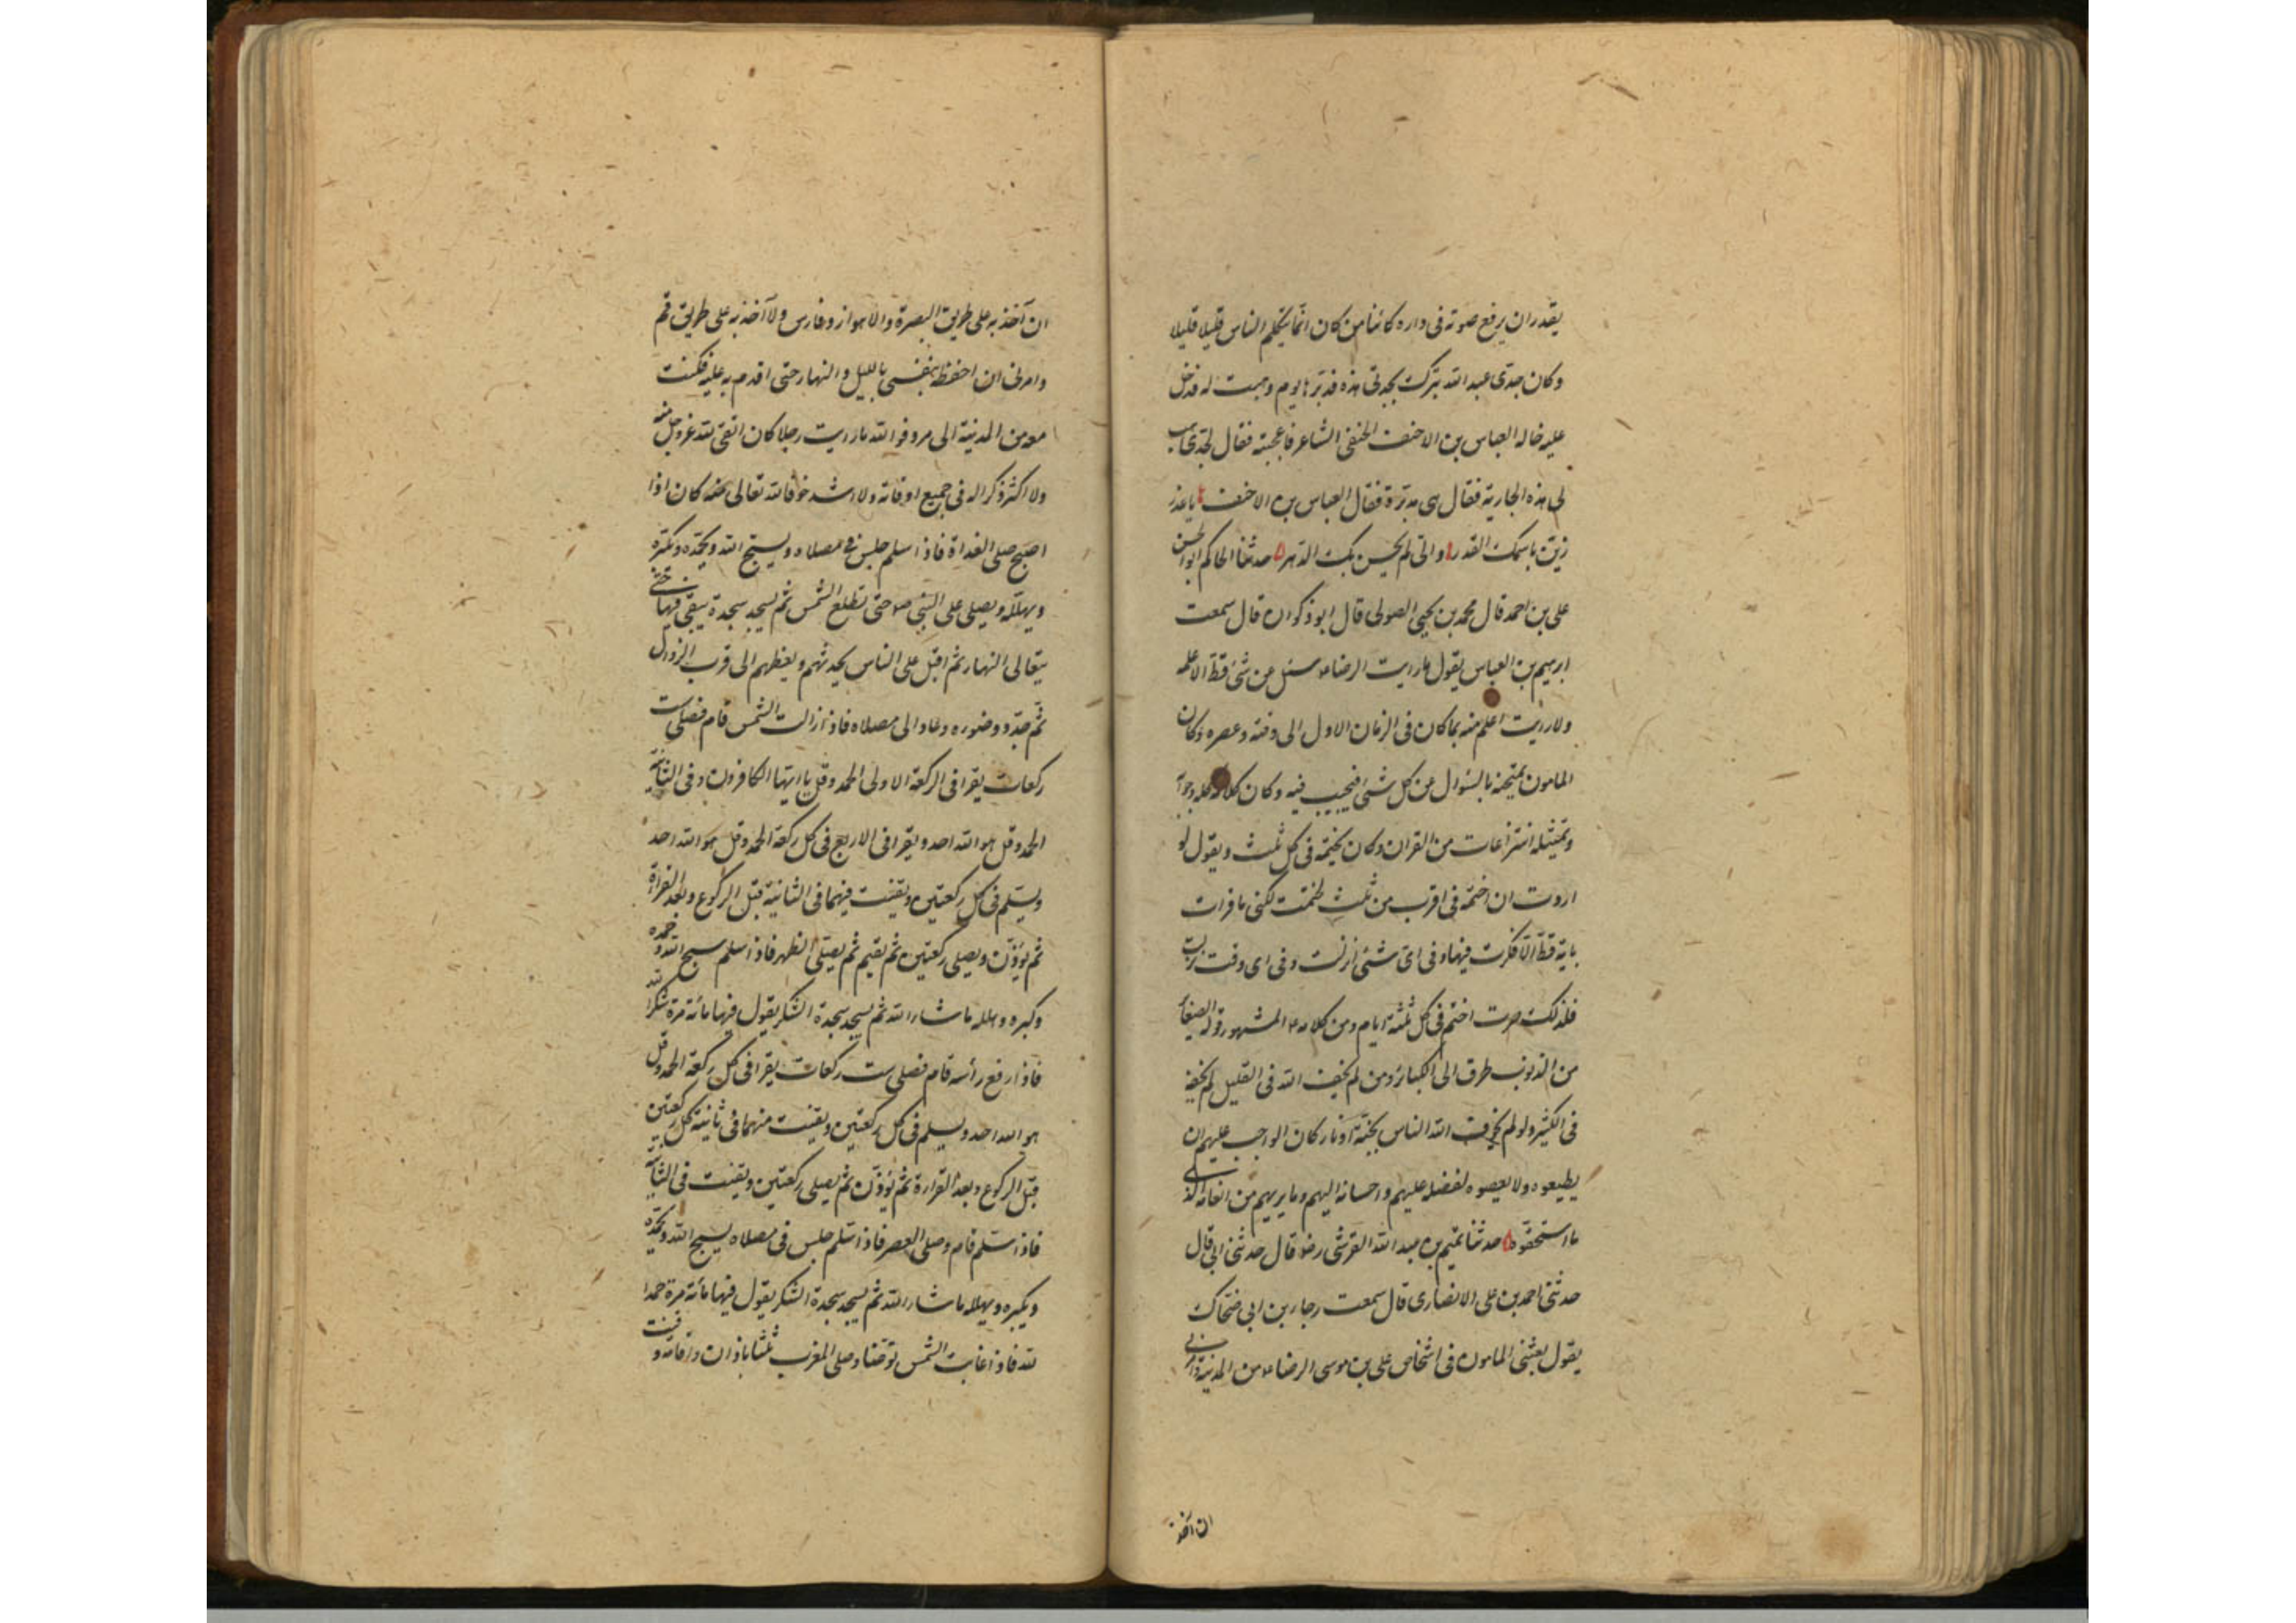 يقدر ان يرفع صوته فى داره كائنا من كان انّما يتكلم الناس قليلا قليلا
وكان جدى عبد الله يترك بجدتى هذه فدبّرها يوم وهبت له فدخل
عليه خاله العباس بن الاحنف الحنفى الشاعر فاعجبته فقال لجدى هب
لى هذه الجارية فقال هى مدبّرة فقال العباس بن الاحنف يا عذر
زيّن باسمك القدر واتى لم يحسن بك الدهر حدثنا الحاكم ابوالحسن
على بن احمد قال محمد بن يحيى الصولى قال ابوذكوان قال سمعت
ابرهيم بن العباس يقول ما رايت الرضا ع سئل عن شئ قطّ الا علمه
ولا رايت اعلم منه بما كان فى الزمان الاول الى وقته وعصره وكان
المامون يمتحنه بالسؤال عن كل شئ فيجيب فيه وكان كلامه كله وجوابه
وتمثيله انتزاعات من القران وكان يختمه فى كل ثلث ويقول لو
اردت ان اختمه فى اقرب من ثلث لختمت لكنى ما قرات
باية قطّ الّا فكرت فيها وفى اىّ شئ انزلت وفى اى وقت
فلذلك صرت اختم فى كل ثلثة ايام ومن كلامه ع المشهور قوله الصغائر
من الذنوب طرق الى الكبائر ومن لم يخف الله فى القليل لم يخفه
فى الكثير ولو لم يخوف الله الناس بجنّة ونار كان الواجب عليهم ان
يطيعوه ولا يعصوه لفضله عليهم واحسانه اليهم وما بريهم من انعامه الذى
ما استحقّوه حدثنا تميم بن عبد الله القرشى رضو قال حدثنى ابى قال
حدثنى احمد بن على الانصارى قال سمعت رجاء بن ابى ضحّاك
يقول بعثنى المامون فى اشخاص على بن موسى الرضا ع من المدينة وامرنى
ان آخذ
ان آخذ به على طريق البصرة والاهواز وفارس ولا آخذ به على طريق قم
وامرنى ان احفظه بنفسى بالليل والنهار حتى اقدم به عليه فكنت
معه من المدينة الى مرو فوالله ما رايت رجلا كان اتقى لله عزوجل منه
ولا اكثر ذكرا له فى جميع اوقاته ولا اشد خوفا لله تعالى منه كان اذا
اصبح صلى الغداة فاذا سلم جلس فى مصلاه ويسبّح الله ويحمّده ويكبّره
ويهلّله ويصلى على النبى ص حتى تطلع الشمس ثم يسجد سجدة يبقى فيها حتى
يتعالى النهار ثم اقبل على الناس يحدثهم ويعظهم الى قرب الزوال
ثمّ جدّد وضوءه وعاد الى مصلاه فاذا زالت الشمس قام فصلى ست
ركعات يقرا فى الركعة الاولى الحمد وقل يا ايّها الكافرون وفى الثانية
الحمد وقل هو الله احد ويقرا فى الاربع فى كل ركعة الحمد وقل هو الله احد
ويسلم فى كل ركعتين ويقنت فيهما فى الثانية قبل الركوع وبعد القراءة
ثم يؤذّن ويصلى ركعتين ثم يقيم ثم يصلّى الظهر فاذا سلم سبح الله وحمده
وكبره وهلله ما شاء الله ثم يسجد سجدة الشكر يقول فيها مائة مرة شكرا لله
فاذا رفع رأسه قام فصلى ست ركعات يقرا فى كل ركعة الحمد وقل
هو الله احد ويسلم فى كل ركعتين ويقنت منهما فى ثانية كل ركعتين
قبل الركوع وبعد القراءة ثم يؤذّن ثم يصلى ركعتين ويقنت فى الثانية
فاذا سلم قام وصلى العصر فاذا سلم جلس فى مصلاه يسبح الله ويحمّده
ويكبره ويهلله ما شاء الله ثم يسجد سجدة الشكر يقول فيها مائة مرة حمدا
لله فاذا غابت الشمس توضّا وصلى المغرب ثلثا باذان واقامة وقنت